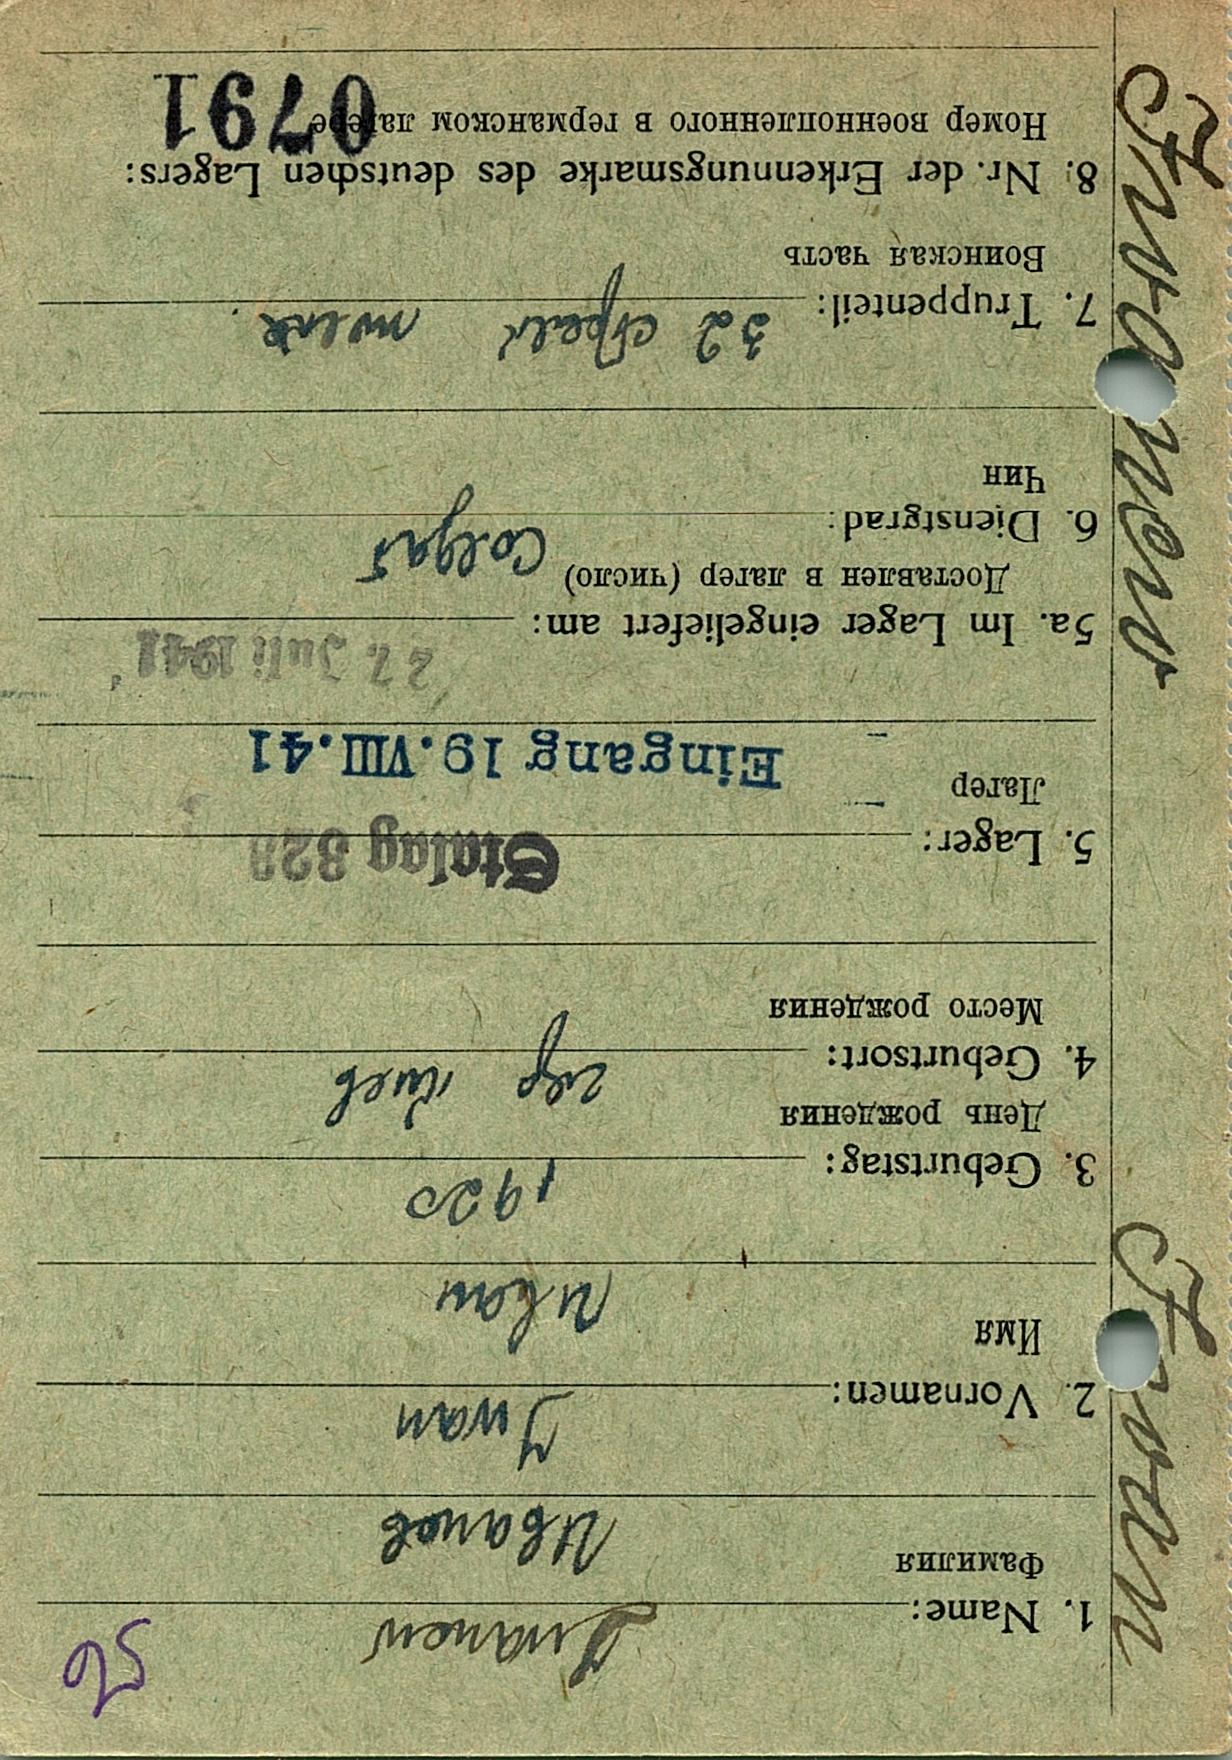 56
1. Name: Iwanew
Фамилия Иванев
2. Vornamen: Iwan
Имя Иван
3. Geburtstag: 1920
День рождения
4. Geburtsort: гор Киев
Место рождения
5. Lager: Stalag 328
Лагер
Eingang 19.VIII.41
27. Juli 1941
5a. Im Lager eingeliefert am:
Доставлен в лагер (число)
6. Dienstgrad: Солдат
Чин
7. Truppenteil: 32 стрел полк.
Воинская часть
8. Nr. der Erkennungsmarke des deutschen Lagers:
Номер военнопленного в германском лагере 0791
Iwanew Iwan